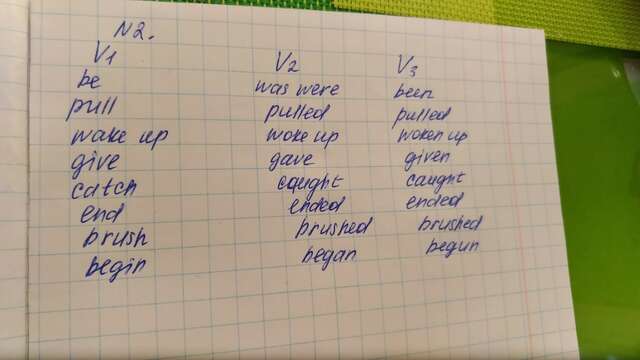 N2.
V1 V2 V3
be was were been
pull pulled pulled
wake up woke up woken up
give gave given
catch caught caught
end ended ended
brush brushed brushed
begin began begun